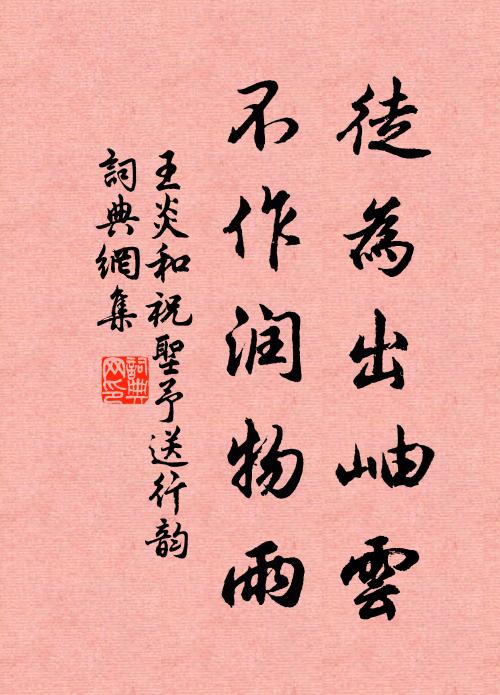 徒為出岫雲
不作润物雨
王炎和祝聖予送行韵
詞典網集
詞典網印